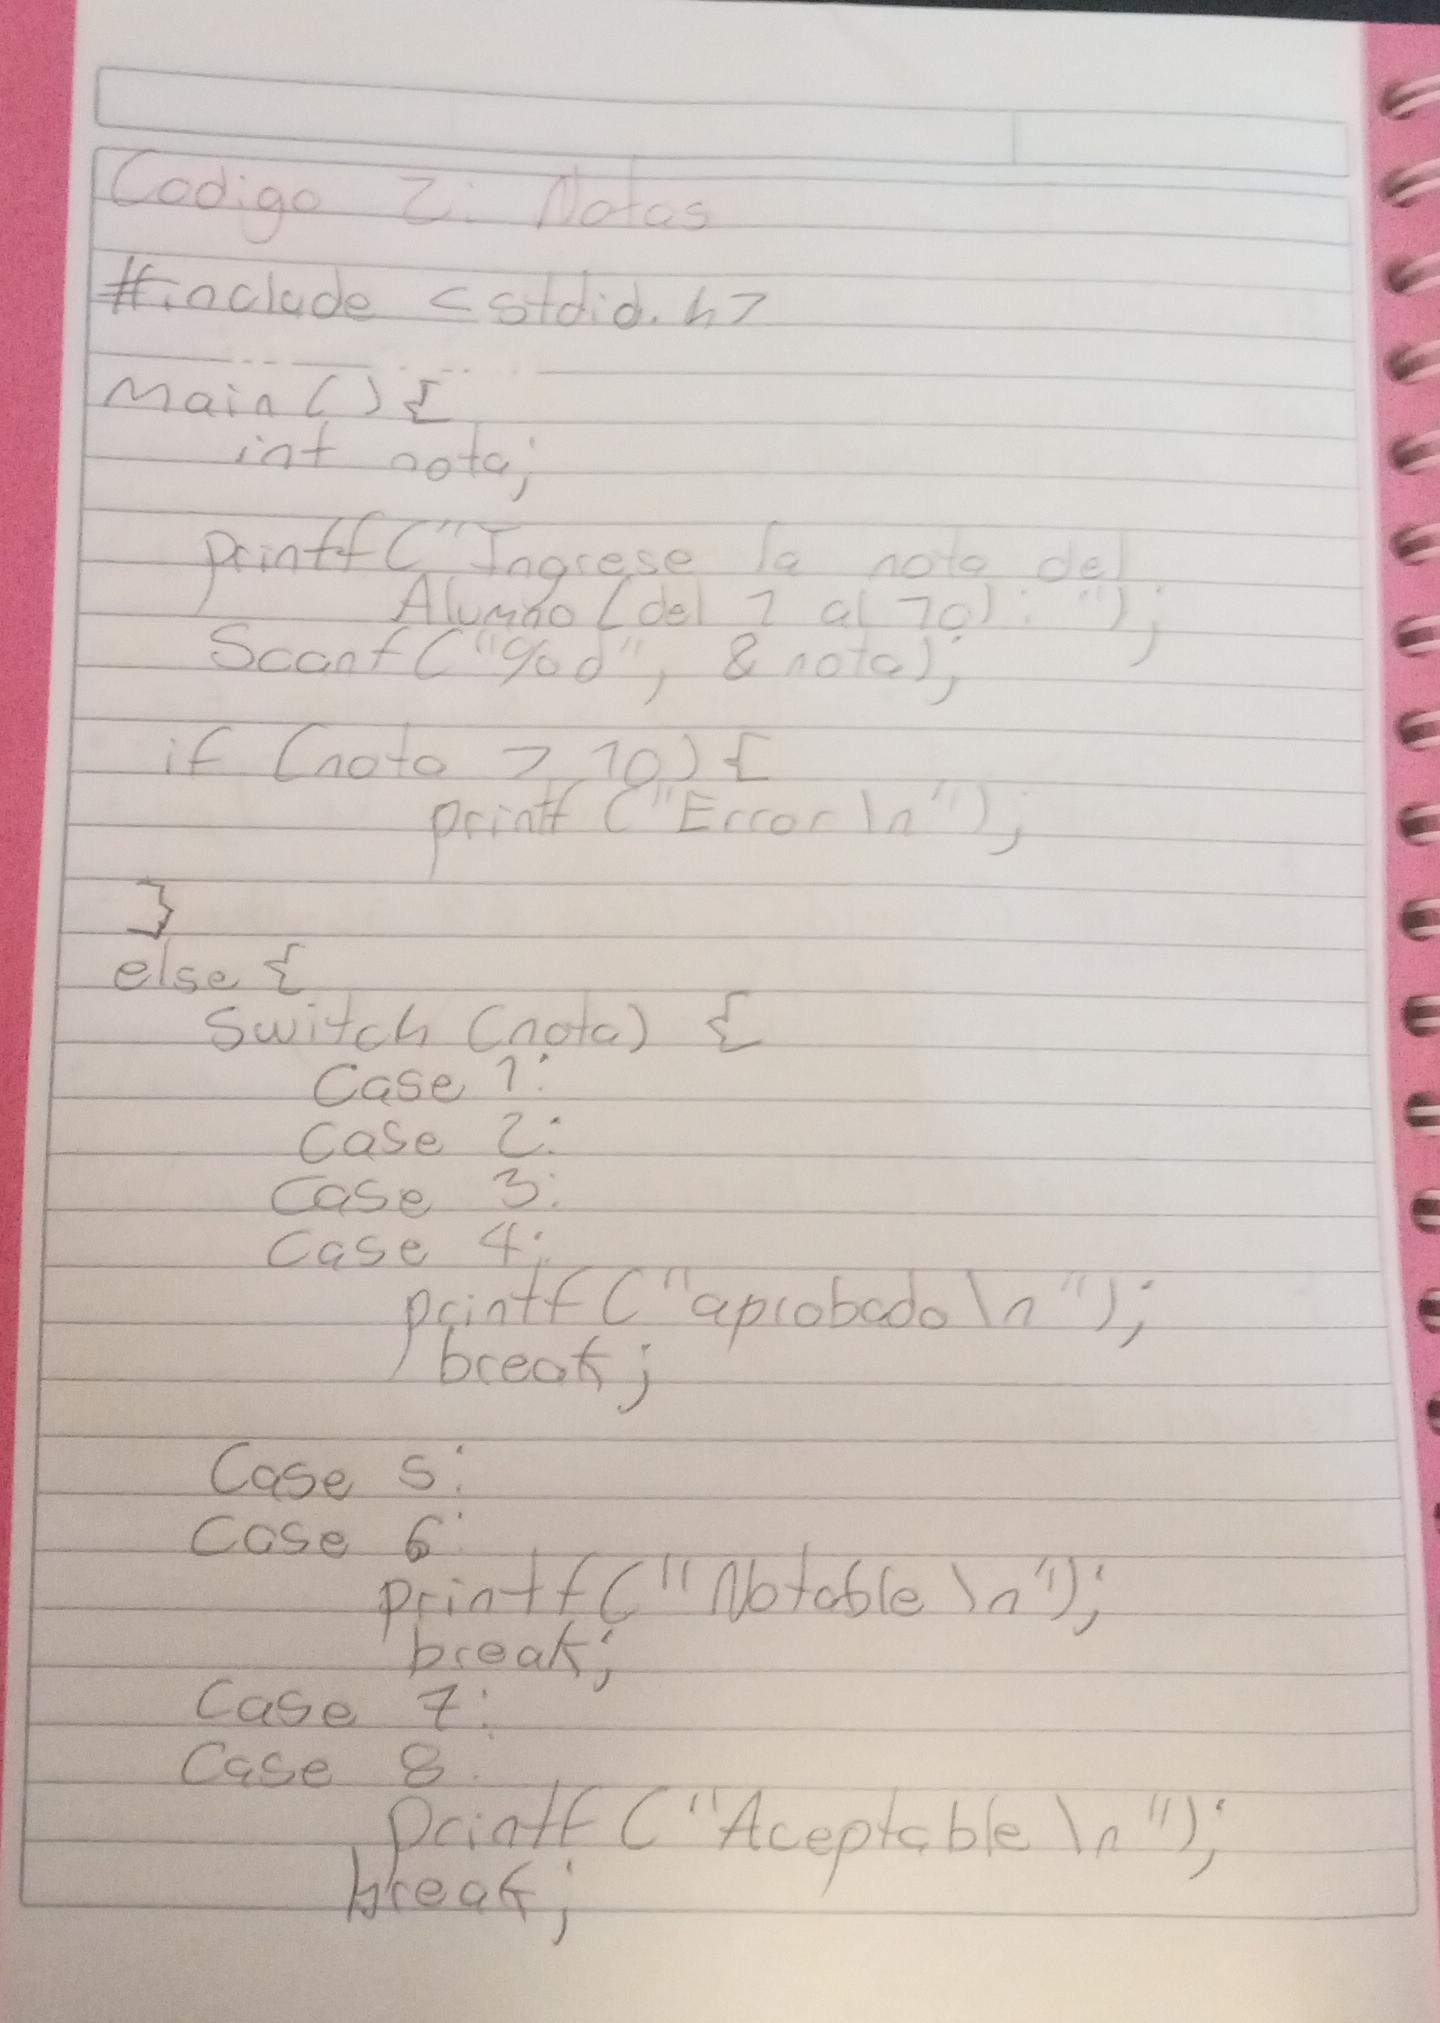 Codigo 2: Notas
#include <stdid.h>
Main() {
int nota;
printf("Ingrese la nota del
Alumno (del 1 al 10): ");
Scanf("%d", & nota);
if (nota > 10) {
printf ("Error \n");
}
else {
Switch (nota) {
Case 1:
Case 2:
Case 3:
Case 4:
printf ("aprobado \n");
break;
Case 5:
Case 6:
printf ("Notable \n");
break;
Case 7:
Case 8:
printf ("Aceptable \n");
break;